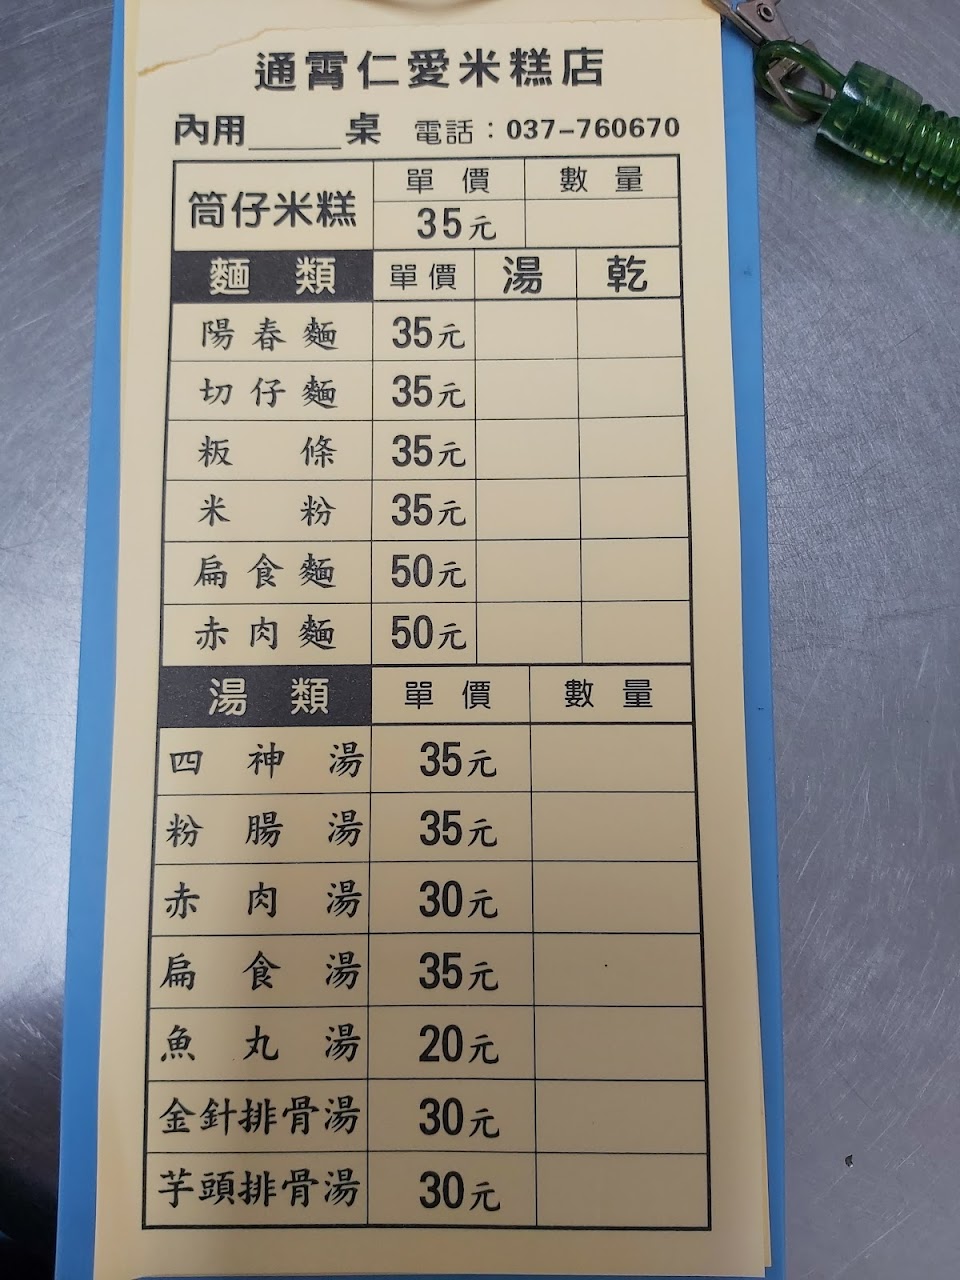 通霄仁愛米糕店
內用_____桌 電話：037-760670
筒仔米糕 單價 數量
35元
麵類 單價 湯 乾
陽春麵 35元
切仔麵 35元
粄條 35元
米粉 35元
扁食麵 50元
赤肉麵 50元
湯類 單價 數量
四神湯 35元
粉腸湯 35元
赤肉湯 30元
扁食湯 35元
魚丸湯 20元
金針排骨湯 30元
芋頭排骨湯 30元